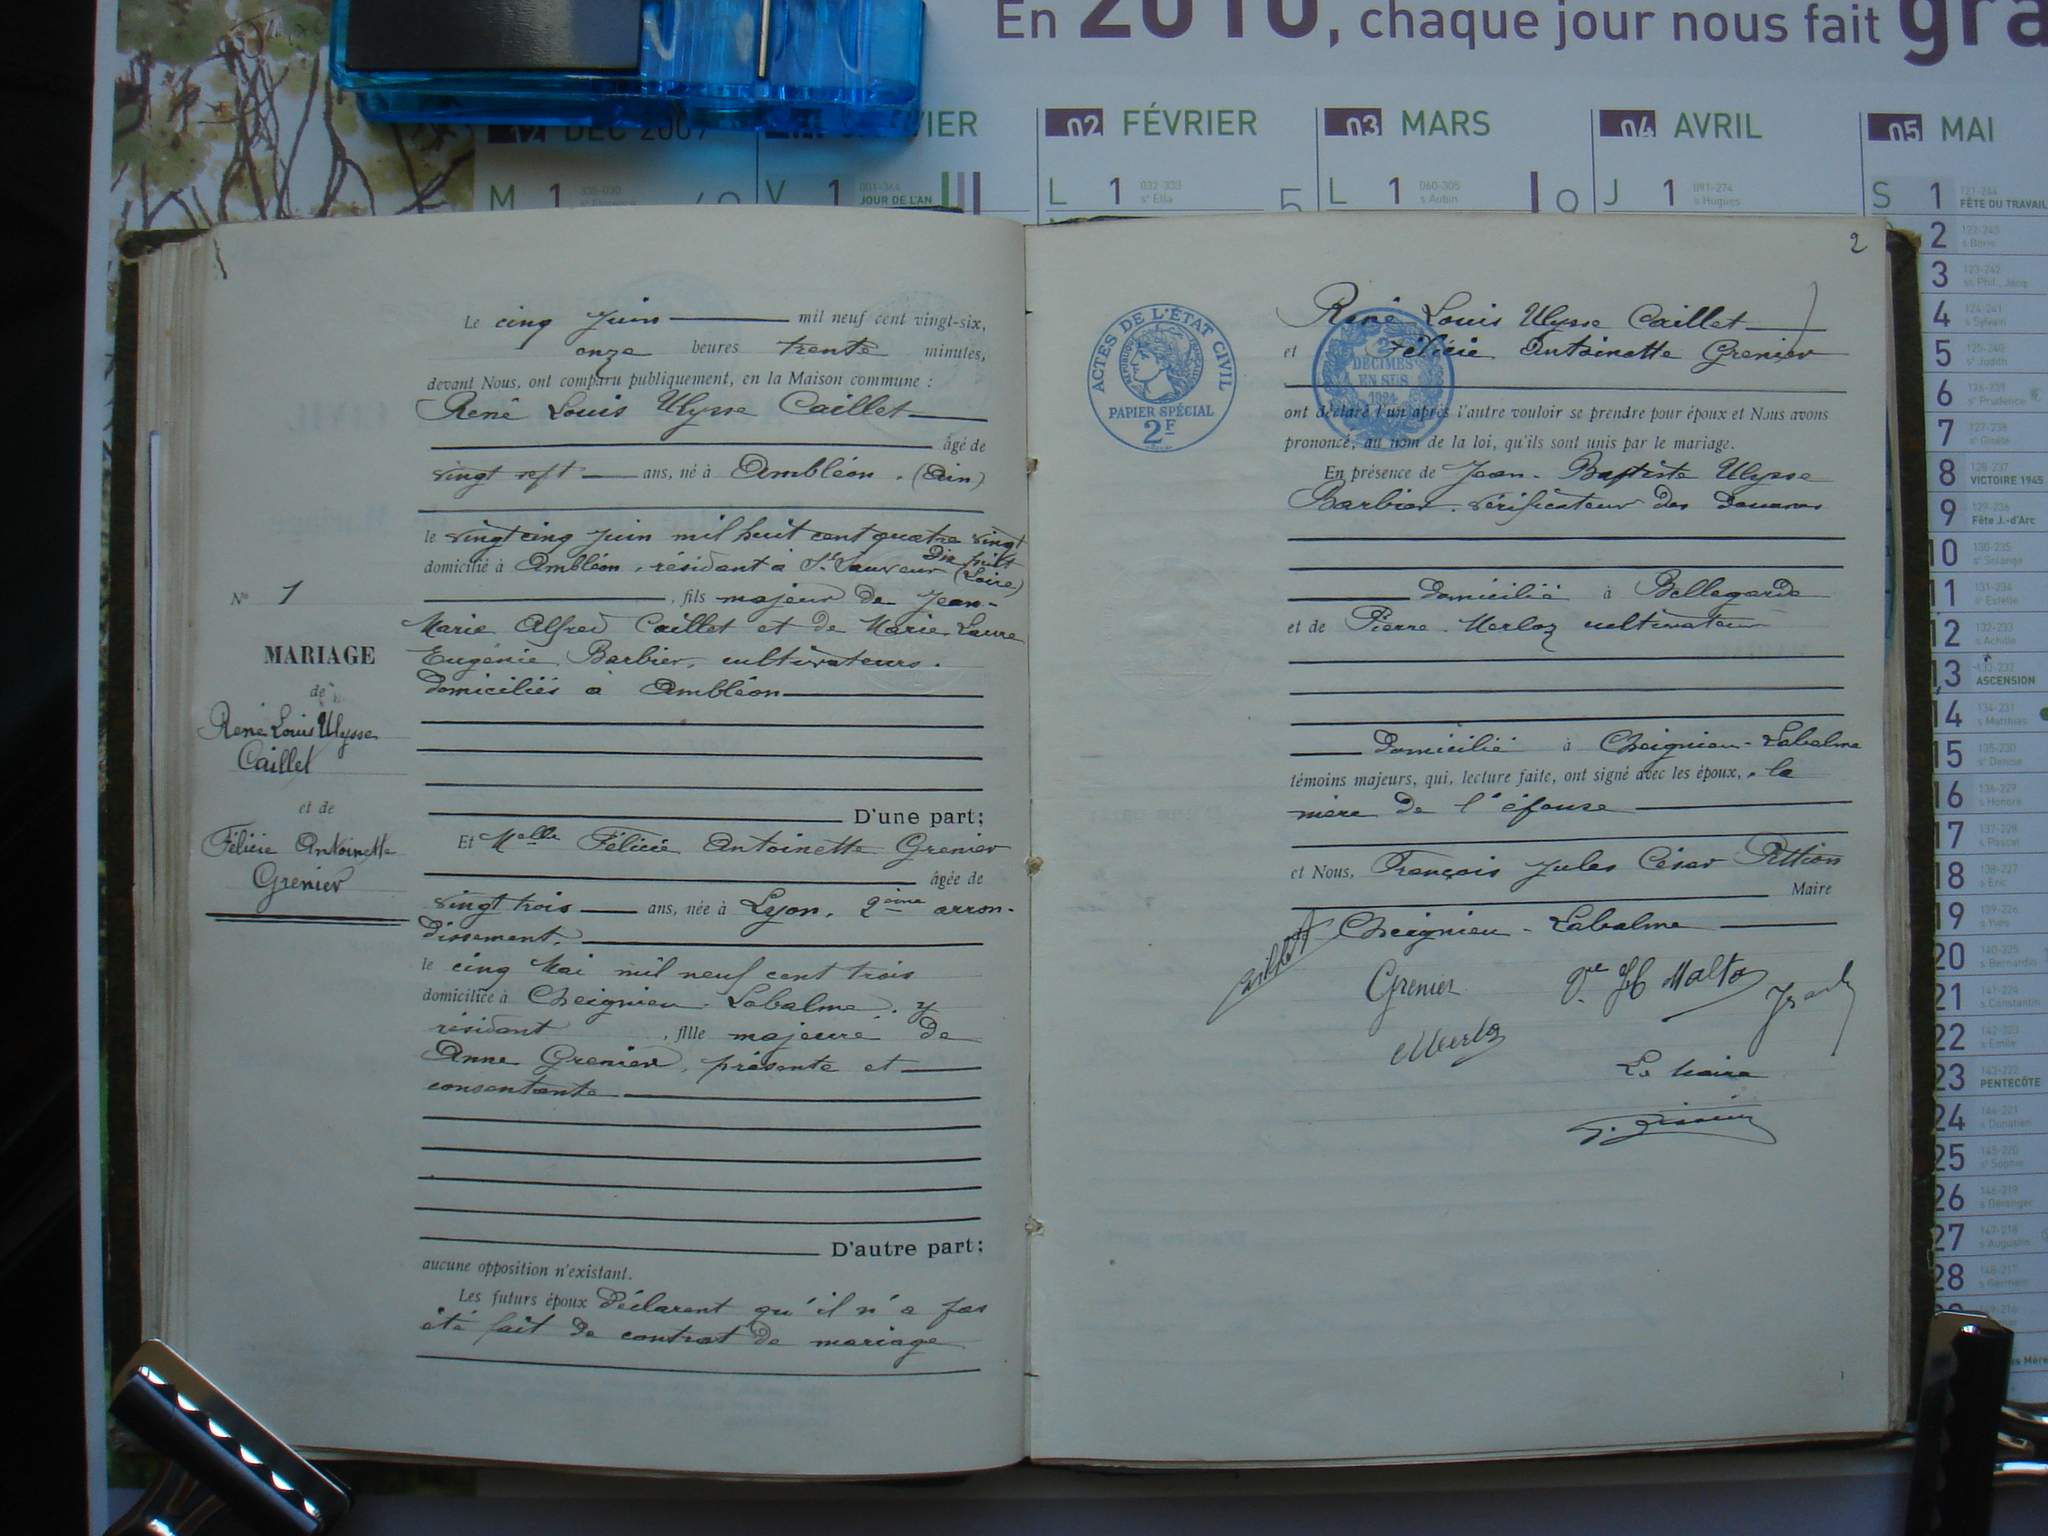 En 2010, chaque jour nous fait gra
12 DÉC 2009
VIER
02 FÉVRIER
03 MARS
04 AVRIL
05 MAI
M 1
V 1 001-364 JOUR DE L'AN
L 1 032-333 s° Ella 5
L 1 060-305 s Aubin 9
J 1 091-274 s Hugues
S 1 121-244 FÊTE DU TRAVAIL
2 122-243 s Boris
3 123-242 ss Phil., Jacq
4 124-241 s Sylvain
5 125-240 s° Judith
6 126-239 s° Prudence
7 127-238 s° Gisèle
8 128-237 VICTOIRE 1945
9 129-236 Fête J.-d'Arc
10 130-235 s° Solange
11 131-234 s° Estelle
12 132-233 s Achille
13 133-232 ASCENSION
14 134-231 s Matthias
15 135-230 s° Denise
16 136-229 s Honoré
17 137-228 s Pascal
18 138-227 s Eric
19 139-226 s Yves
20 140-225 s Bernardin
21 141-224 s Constantin
22 142-223 s Emile
23 143-222 PENTECÔTE
24 144-221 s Donatien
25 145-220 s° Sophie
26 146-219 s Bérenger
27 147-218 s Augustin
28 148-217 s Germain
149-216
Le cinq Juin mil neuf cent vingt-six,
onze heures trente minutes,
devant Nous, ont comparu publiquement, en la Maison commune :
René Louis Ulysse Caillet
âgé de
vingt sept ans, né à Ambléon. (Ain)
le vingt cinq Juin mil huit cent quatre vingt
dix huit
domicilié à Ambléon, résidant à St Sauveur (Loire)
, fils majeur de Jean-
Marie Alfred Caillet et de Marie Laure
Eugénie Barbier, cultivateurs.
domiciliés à Ambléon
D'une part;
Et Melle Félicie Antoinette Grenier
âgée de
vingt trois ans, née à Lyon, 2ème arron-
dissement.
le cinq Mai mil neuf cent trois
domiciliée à Cheignieu-Labalme. y
résidant, fille majeure de
Anne Grenier, présente et
consentante
D'autre part;
aucune opposition n'existant.
Les futurs époux déclarent qu'il n'a pas
été fait de contrat de mariage
N° 1
MARIAGE
de
René Louis Ulysse
Caillet
et de
Félicie Antoinette
Grenier
2
ACTES DE L'ÉTAT CIVIL
RÉPUBLIQUE FRANÇAISE
PAPIER SPÉCIAL
2F
2
DÉCIMES
EN SUS
1924
René Louis Ulysse Caillet
et Félicie Antoinette Grenier
ont déclaré l'un après l'autre vouloir se prendre pour époux et Nous avons
prononcé, au nom de la loi, qu'ils sont unis par le mariage.
En présence de Jean-Baptiste Ulysse
Barbier. vérificateur des Douanes
domicilié à Bellegarde
et de Pierre Merloz cultivateur
domicilié à Cheignieu-Labalme
témoins majeurs, qui, lecture faite, ont signé avec les époux, la
mère de l'épouse
et Nous, François Jules César Pittion
Maire
de Cheignieu-Labalme
Caillet
Grenier
Merloz
Le Maire